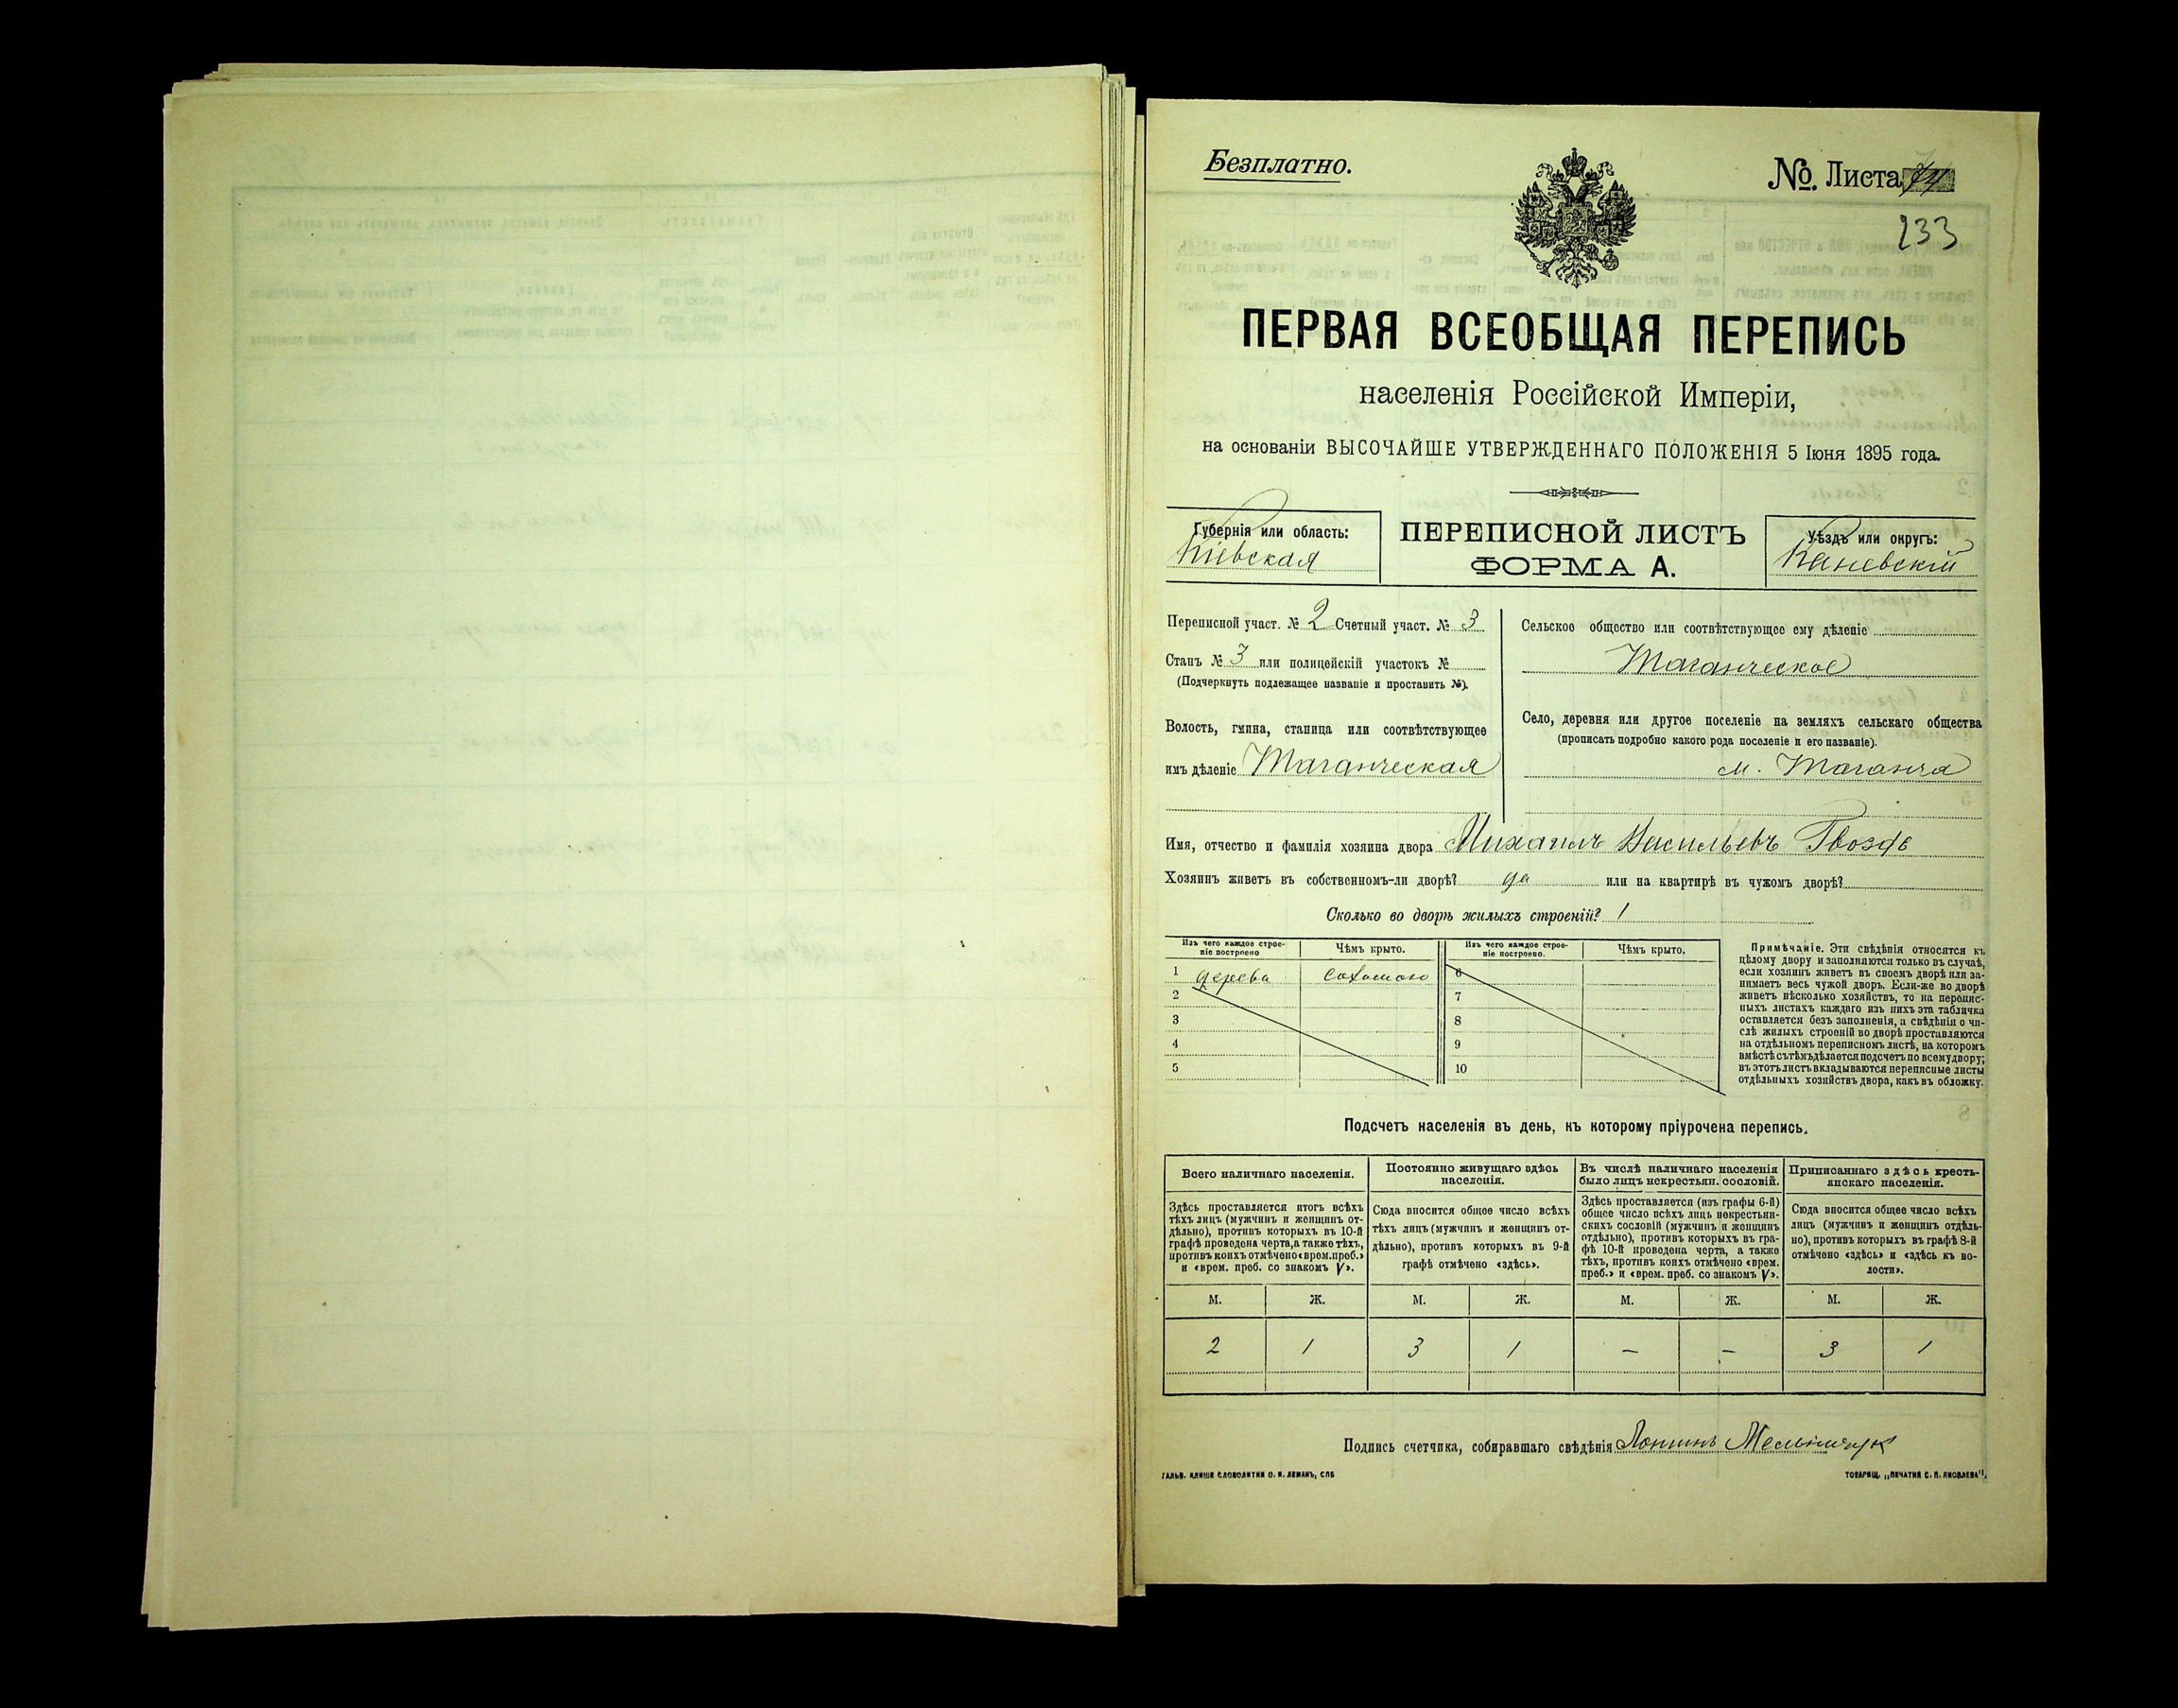 Безплатно.
№. Листа
233
ПЕРВАЯ ВСЕОБЩАЯ ПЕРЕПИСЬ
населенія Россійской Имперіи,
на основаніи ВЫСОЧАЙШЕ УТВЕРЖДЕННАГО ПОЛОЖЕНІЯ 5 Іюня 1895 года.
Губернія или область:
Кіевская
ПЕРЕПИСНОЙ ЛИСТЪ
ФОРМА А.
Уѣздъ или округъ:
Каневскій
Переписной участ. № 2 Счетный участ. № 3
Станъ № 3 или полицейскій участокъ №
(Подчеркнуть подлежащее названіе и проставить №).
Волость, гмина, станица или соотвѣтствующее
имъ дѣленіе Таганческая
Сельское общество или соотвѣтствующее ему дѣленіе
Таганческое
Село, деревня или другое поселеніе на земляхъ сельскаго общества
(прописать подробно какого рода поселеніе и его названіе).
м. Таганча
Имя, отчество и фамилія хозяина двора Михаилъ Васильевъ Гвоздь
Хозяинъ живетъ въ собственномъ-ли дворѣ? да или на квартирѣ въ чужомъ дворѣ?
Сколько во дворѣ жилыхъ строеній? 1
Изъ чего каждое строе-
ніе построено
Чѣмъ крыто.
Изъ чего каждое строе-
ніе построено.
Чѣмъ крыто.
1 дерева соломою 6
2 7
3 8
4 9
5 10
Примѣчаніе. Эти свѣдѣнія относятся къ
цѣлому двору и заполняются только въ случаѣ,
если хозяинъ живетъ въ своемъ дворѣ или за-
нимаетъ весь чужой дворъ. Если-же во дворѣ
живетъ нѣсколько хозяйствъ, то на перепис-
ныхъ листахъ каждаго изъ нихъ эта табличка
оставляется безъ заполненія, а свѣдѣнія о чи-
слѣ жилыхъ строеній во дворѣ проставляются
на отдѣльномъ переписномъ листѣ, на которомъ
вмѣстѣ съ тѣмъ дѣлается подсчетъ по всему двору;
въ этотъ листъ вкладываются переписные листы
отдѣльныхъ хозяйствъ двора, какъ въ обложку.
Подсчетъ населенія въ день, къ которому пріурочена перепись.
Всего наличнаго населенія.
Здѣсь проставляется итогъ всѣхъ
тѣхъ лицъ (мужчинъ и женщинъ от-
дѣльно), противъ которыхъ въ 10-й
графѣ проведена черта, а также тѣхъ,
противъ коихъ отмѣчено «врем. преб.»
и «врем. преб. со знакомъ V».
Постоянно живущаго здѣсь
населенія.
Сюда вносится общее число всѣхъ
тѣхъ лицъ (мужчинъ и женщинъ от-
дѣльно), противъ которыхъ въ 9-й
графѣ отмѣчено «здѣсь».
Въ числѣ наличнаго населенія
было лицъ некрестьян. сословій.
Здѣсь проставляется (изъ графы 6-й)
общее число всѣхъ лицъ некрестьян-
скихъ сословій (мужчинъ и женщинъ
отдѣльно), противъ которыхъ въ гра-
фѣ 10-й проведена черта, а также
тѣхъ, противъ коихъ отмѣчено «врем.
преб.» и «врем. преб. со знакомъ V».
Приписаннаго здѣсь кресть-
янскаго населенія.
Сюда вносится общее число всѣхъ
лицъ (мужчинъ и женщинъ отдѣль-
но), противъ которыхъ въ графѣ 8-й
отмѣчено «здѣсь» и «здѣсь къ во-
лости».
М. Ж. М. Ж. М. Ж. М. Ж.
2 1 3 1 – – 3 1
Подпись счетчика, собиравшаго свѣдѣнія Мельничук
ГАЛЬВ. КЛИШЕ СЛОВОЛИТНИ О. И. ЛЕМАНЪ, СПБ
ТОВАРИЩ. „ПЕЧАТНЯ С. П. ЯКОВЛЕВА".